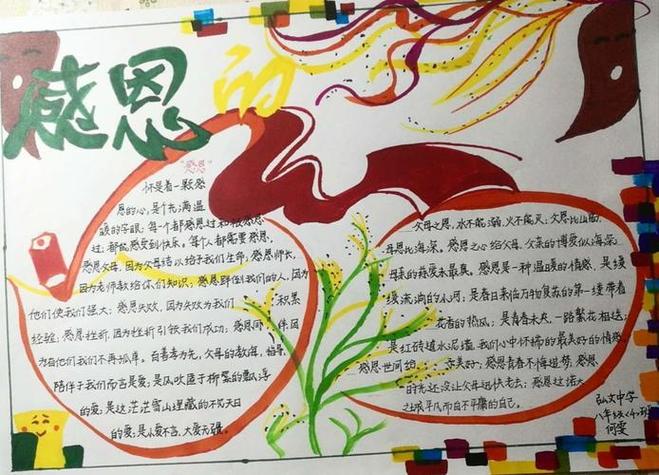 感恩的心
"感恩"
怀是着一颗感
恩的心,是个充满温
暖的字眼,每个都感恩过和被感恩
过;都能感受到快乐,每个人都需要感恩。
感恩父母,因为父母给以给于我们生命;感恩师长,
因为老师教给你们知识;感恩绊倒我们的人,因为
他们使我们强大;感恩失败,因为失败为我们 积累
经验;感恩挫折,因为挫折引领我们成功;感恩同 伴因
为有他们我们不再孤单。自古孝为先,父母的教诲,
陪伴于我们而言是爱;是风吹
的爱;是这茫茫雪山埋藏的不见天日
的爱;是小爱不言,大爱无疆。
父母之恩,水不能溺,火不能灭,父恩比山高,
母恩比海深。感恩之心给父母,父亲的博爱似海深
母亲的慈爱永最真。感恩是一种温暖的情感,是缓
缓流淌的小河;是春日来临万物复苏的第一缕带着
花香的热风;是青春未央,一路繁花相送;
是红砖墙水泥道,我们心中怀揣的最美好的情愫。
感恩世间给 亲美好,感恩青春不悔追梦,感恩
时光还没让父母远快老去;感恩这诺大
之城平凡而自不平庸的自己。
弘文中学
八年级(4)班
何雯